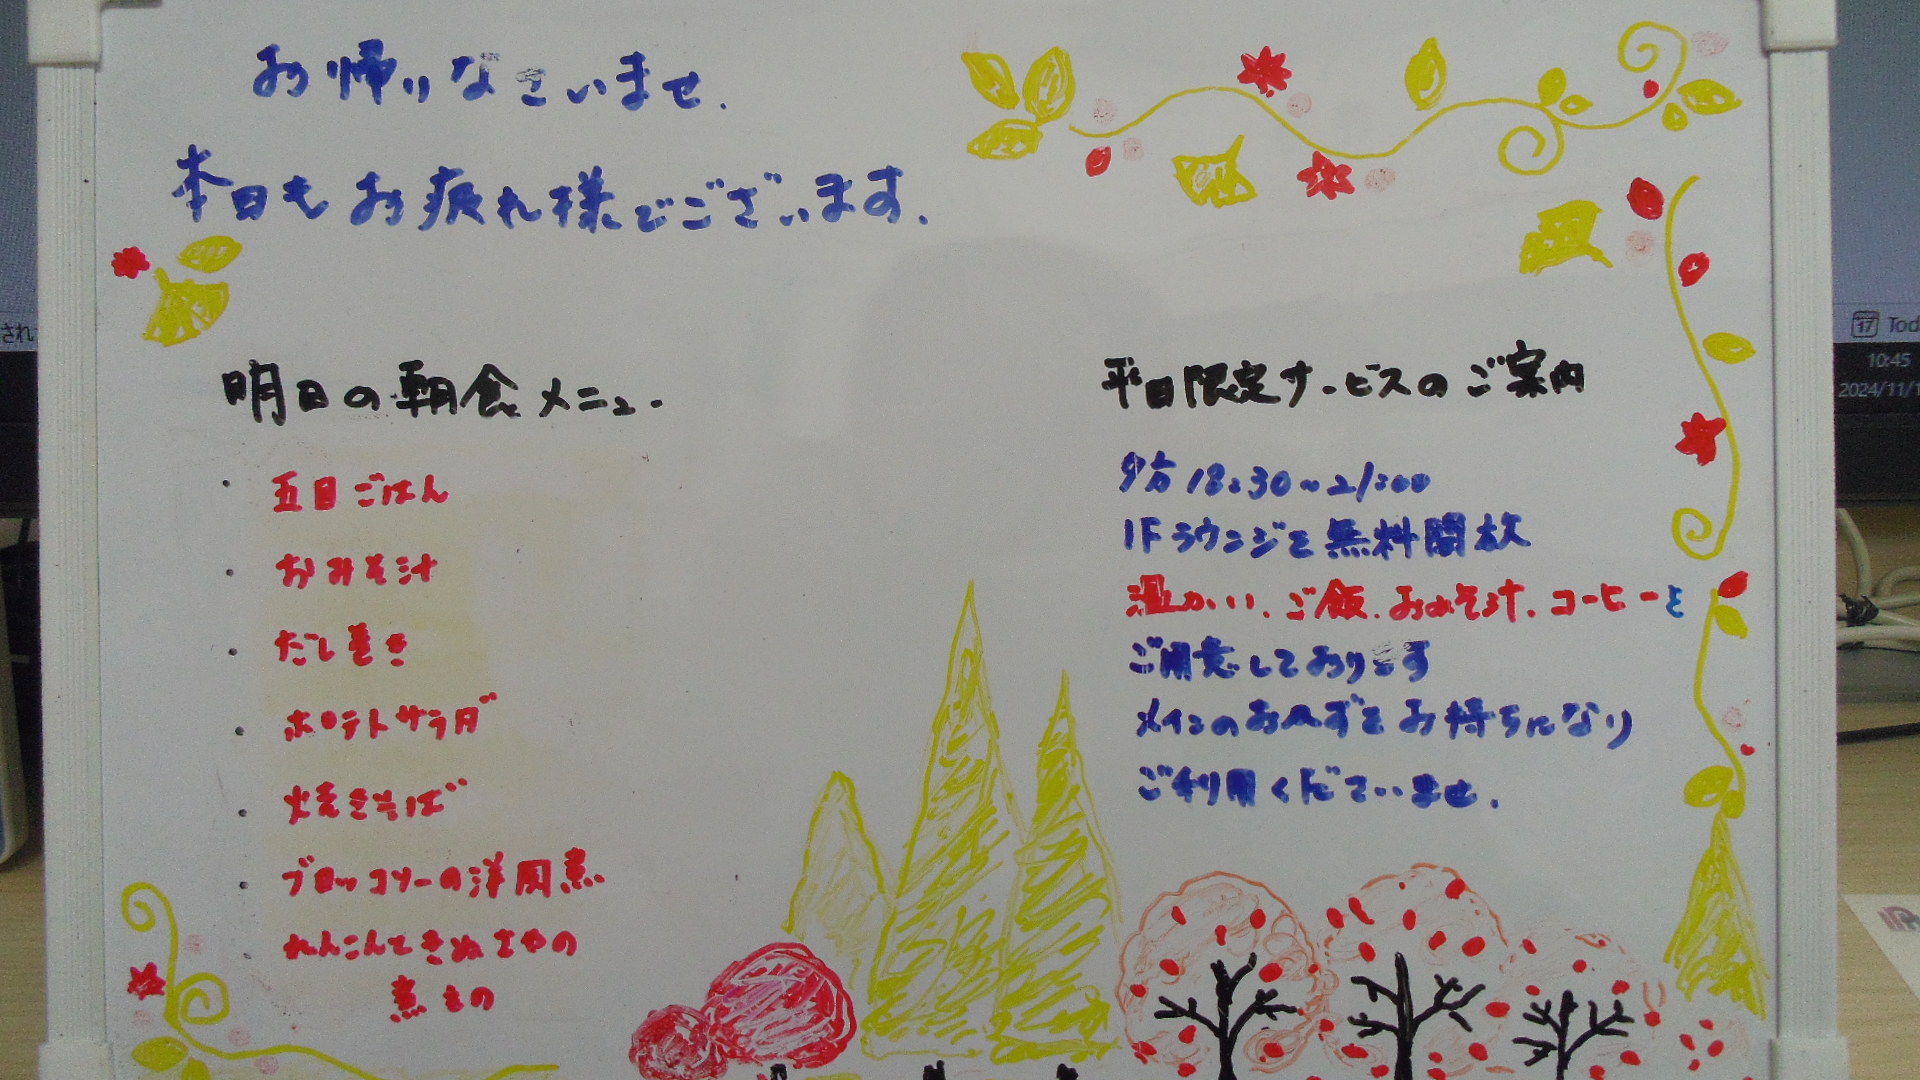 お帰りなさいませ.
本日もお疲れ様でございます.
明日の朝食メニュー
・五目ごはん
・おみそ汁
・だし巻き
・ポテトサラダ
・焼きそば
・ブロッコリーの洋風煮
・れんこんときぬさやの
煮もの
平日限定サービスのご案内
夕方 18:30~21:00
1Fラウンジを無料開放
温かい、ご飯、おみそ汁、コーヒーを
ご用意しております
メインのおかずをお持ちになり
ご利用くださいませ.
され
17 Tod
10:45
2024/11/1